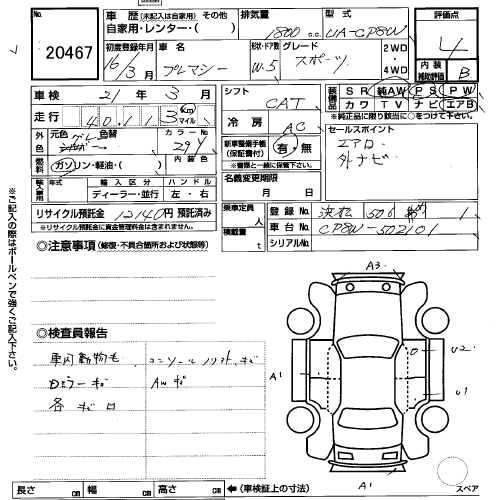 No.
20467
車歴 (未記入は自家用) その他
自家用・レンター・( )
排気量
1800 c.c.
型式
UA-CP8W
評価点
4
初度登録年月
16/3月
車名
プレマシー
形状・ドア数
W・5
グレード
スポーツ
2WD
・
4WD
内装
補助評価
B
車検
21年 3月
走行
40,113
Km
マイル
シフト
CAT
装備品
SR 純AW PS PW
カワ TV ナビ エアB
※純正品に限り該当に○を付けて下さい。
外色
元色
色替
カラーNo.
29Y
冷房
AC
セールスポイント
エアロ
外ナビ
燃料
ガソリン・軽油・( )
内装色
新車整備手帳
(保証書付)
有・無
※書類と一緒に保管して下さい。
輸入車
年式
輸入区分
ハンドル
ディーラー・並行
左・右
名義変更期限
月 日
リサイクル預託金
12140円 預託済み
※リサイクル預託金に資金管理料金は含まれません。
乗車定員
人
積載量
t
登録No.
浜松 506 1
車台No.
CP8W-502101
シリアルNo.
◎注意事項 (修復・不具合箇所および状態等)
※ご記入の際はボールペンで強くご記入下さい。
◎検査員報告
車内動物毛
コンソールリフトキズ
Dミラーキズ
AWキズ
各キズ凹
A3
A1
U2
U1
A1
スペア
長さ cm
幅 cm
高さ cm
(車検証上の寸法)